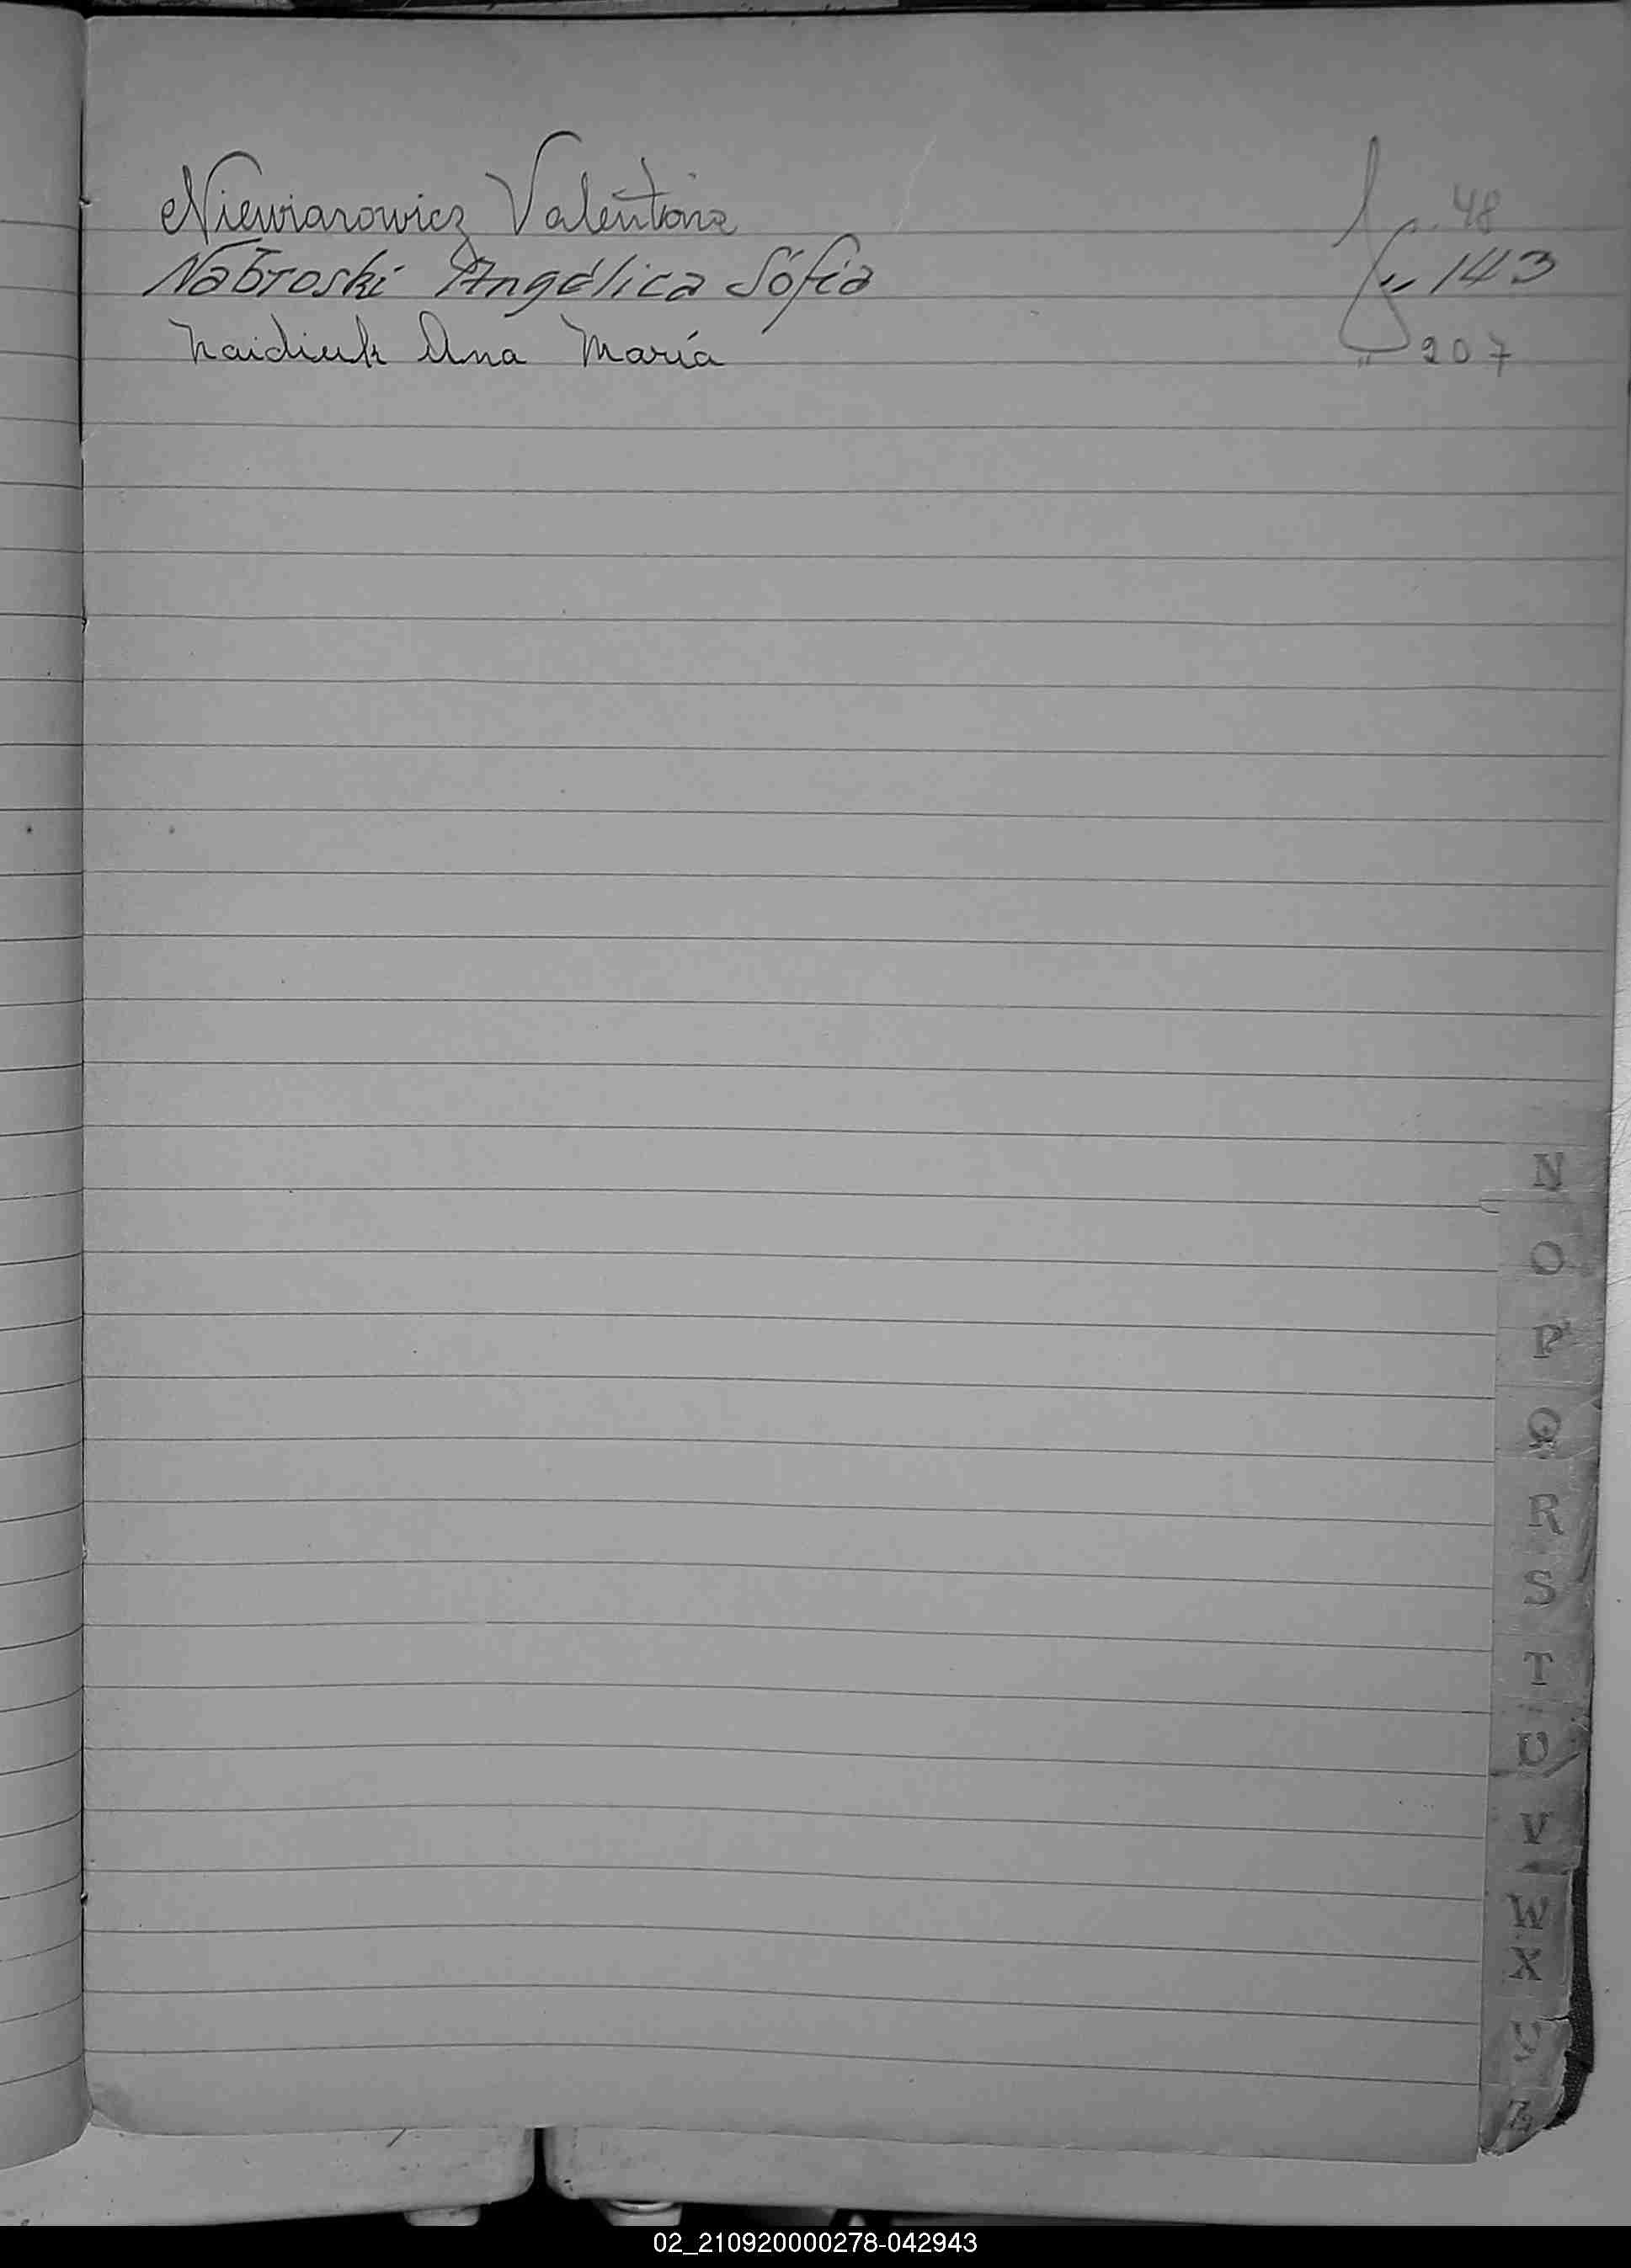 Niewiarowicz Valentina 48
Nabroski Angélica Sofia " 143
Naidiuk Ana María " 207
N
O
P
Q
R
S
T
U
V
W
X
Y
Z
02_210920000278-042943